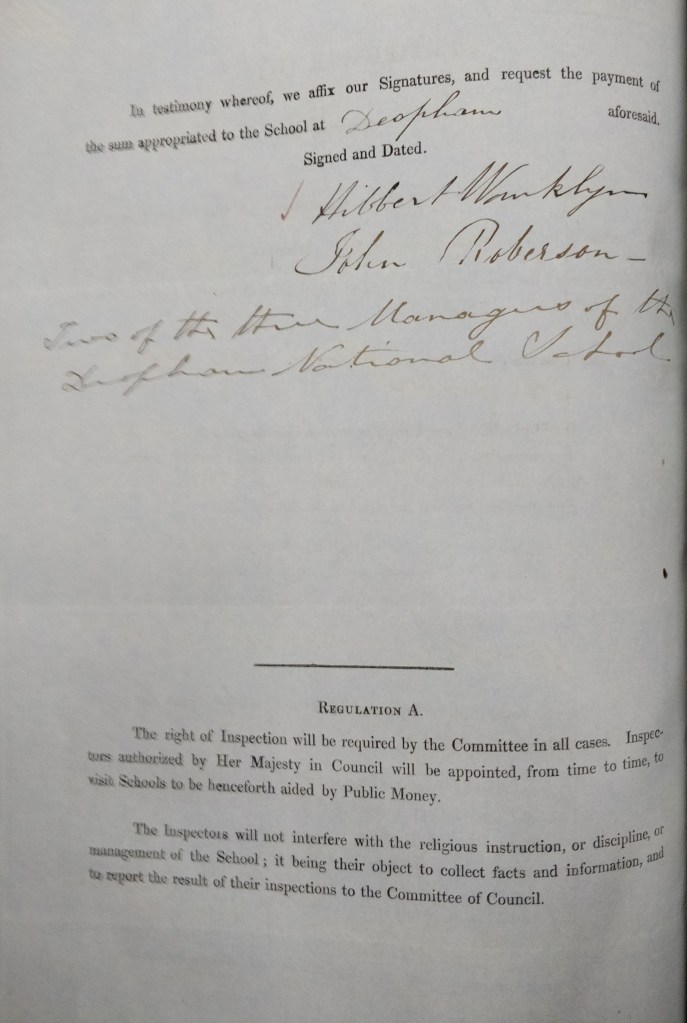 In testimony whereof, we affix our Signatures, and request the payment of
the sum appropriated to the School at Deopham aforesaid.
Signed and Dated.
Hibbert Wanklyn
John Roberson -
Two of the three Managers of the
Deopham National School
REGULATION A.
The right of Inspection will be required by the Committee in all cases. Inspec-
tors authorized by Her Majesty in Council will be appointed, from time to time, to
visit Schools to be henceforth aided by Public Money.
The Inspectors will not interfere with the religious instruction, or discipline, or
management of the School; it being their object to collect facts and information, and
to report the result of their inspections to the Committee of Council.